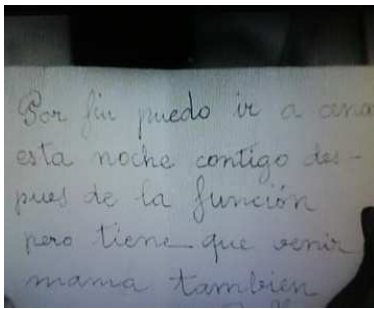 Por fin puedo ir a cena
esta noche contigo des-
pues de la función
pero tiene que venir
mama tambien